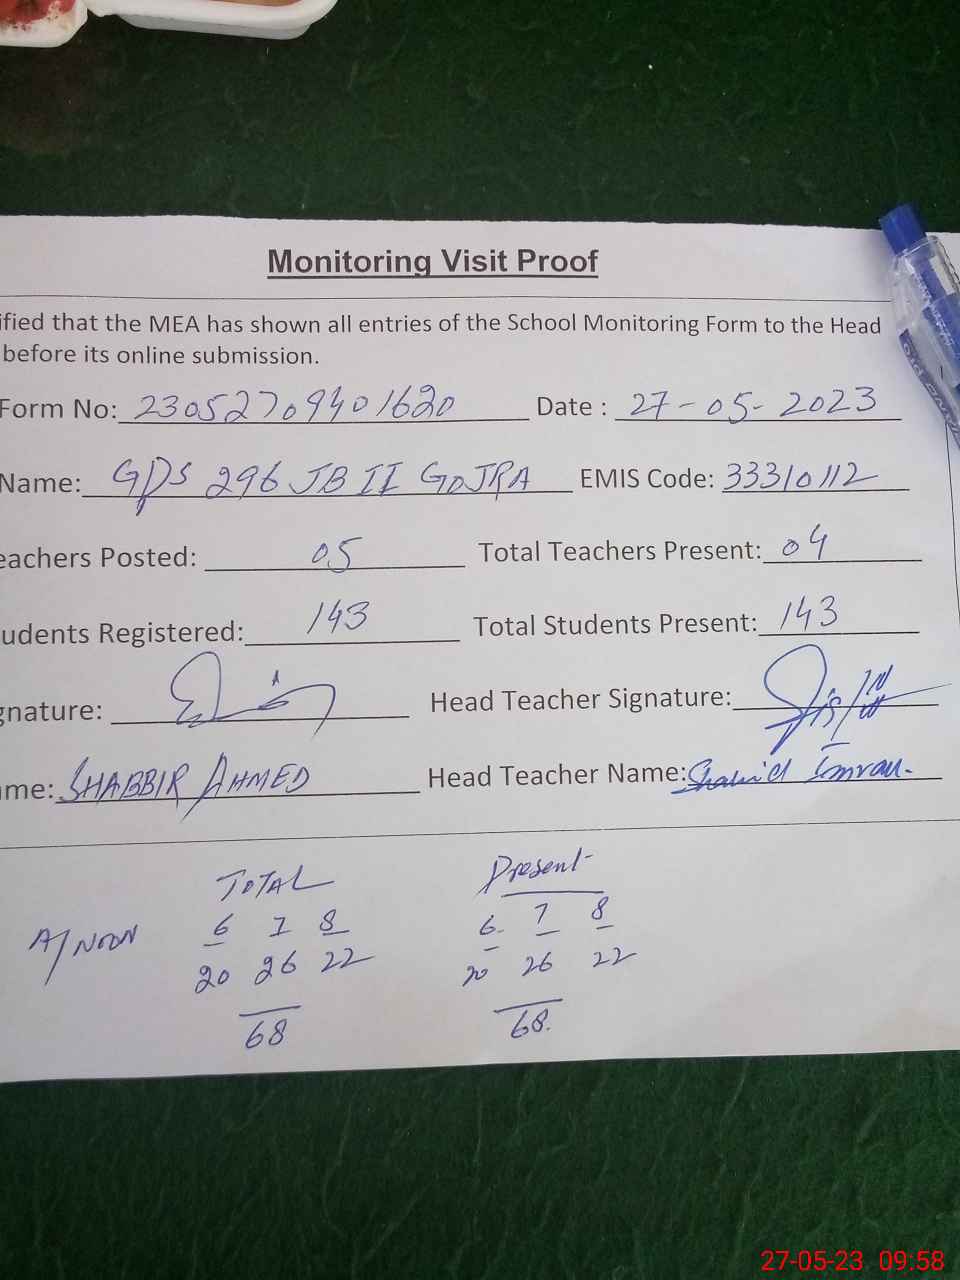 Monitoring Visit Proof
ified that the MEA has shown all entries of the School Monitoring Form to the Head
before its online submission.
Form No: 23052709401620 Date : 27-05-2023
Name: GPS 296 JB II GOJRA EMIS Code: 33310112
eachers Posted: 05 Total Teachers Present: 04
udents Registered: 143 Total Students Present: 143
gnature: Head Teacher Signature:
ame: SHABBIR AHMED Head Teacher Name: Shahid Imran.
TOTAL Present
A/NOON 6 7 8 6 7 8
20 26 22 20 26 22
68 68.
27-05-23 09:58